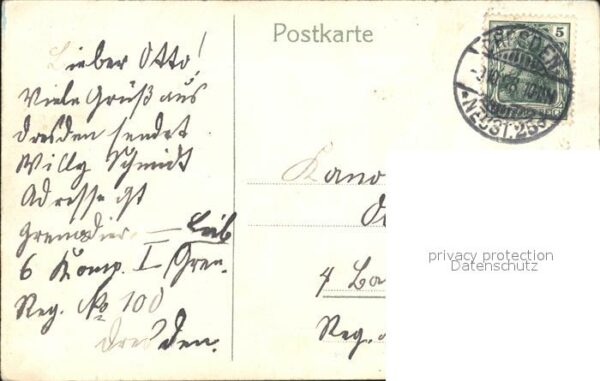 Postkarte
5
DRESDEN
*NEUST.25*
Lieber Otto!
Viele Grüß aus
Dresden sendet
Willy Schmidt
Adresse ist
Grenadier. — Leib
6 Komp. I/Gren.
Reg. No 100
Dresden.
Kano
4 Ba
Reg.
privacy protection
Datenschutz